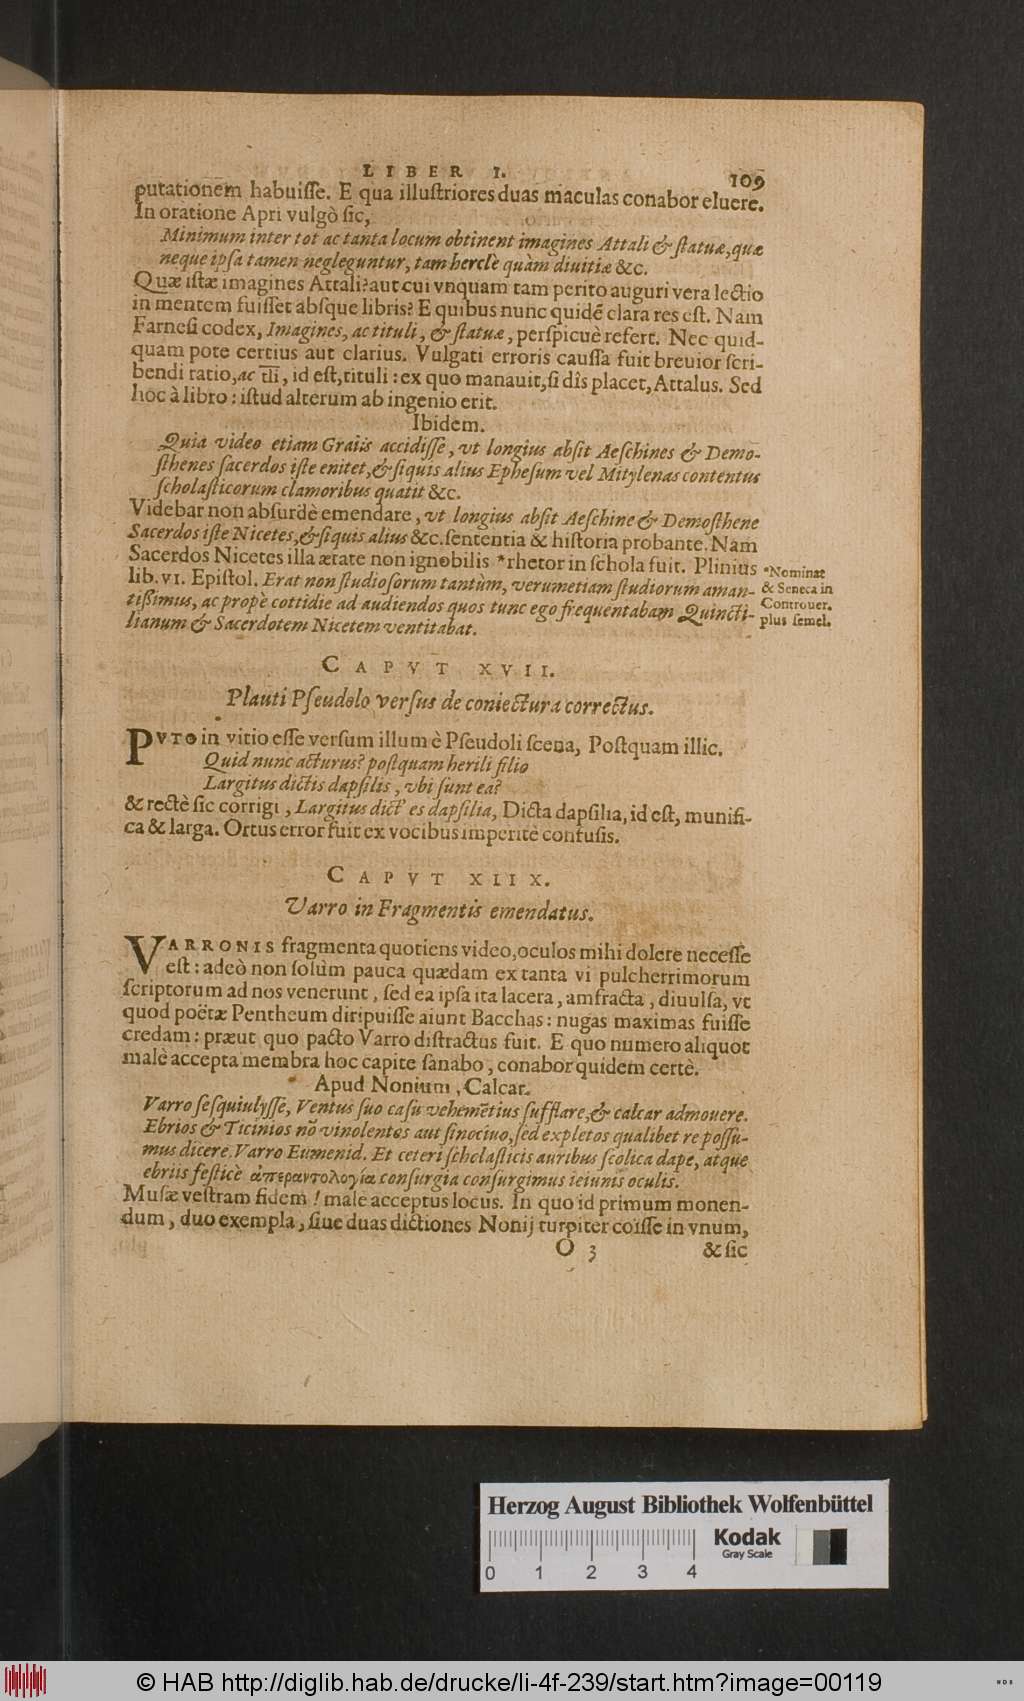 LIBER I. 109
putationem habuisse. E qua illustriores duas maculas conabor eluere.
In oratione Apri vulgò sic,
Minimum inter tot ac tanta locum obtinent imagines Attali & statuæ, quæ
neque ipsa tamen negleguntur, tam herclè quàm diuitiæ &c.
Quæ istæ imagines Attali? aut cui vnquam tam perito auguri vera lectio
in mentem fuisset absque libris? E quibus nunc quidẽ clara res est. Nam
Farnesi codex, Imagines, ac tituli, & statuæ, perspicuè refert. Nec quid-
quam pote certius aut clarius. Vulgati erroris caussa fuit breuior scri-
bendi ratio, ac tli, id est, tituli: ex quo manauit, si dîs placet, Attalus. Sed
hoc à libro: istud alterum ab ingenio erit.
Ibidem.
Quia video etiam Graiis accidisse, vt longius absit Aeschines & Demo-
sthenes sacerdos iste enitet, & siquis alius Ephesum vel Mitylenas contentus
scholasticorum clamoribus quatit &c.
Videbar non absurdè emendare, vt longius absit Aeschine & Demosthene
Sacerdos iste Nicetes, & siquis alius &c. sententia & historia probante. Nam
Sacerdos Nicetes illa ætate non ignobilis *rhetor in schola fuit. Plinius
lib. VI. Epistol. Erat non studiosorum tantùm, verumetiam studiorum aman-
tissimus, ac propè cottidie ad audiendos quos tunc ego frequentabam Quincti-
lianum & Sacerdotem Nicetem ventitabat.
*Nominat
& Seneca in
Controuer.
plus semel.
CAPVT XVII.
Plauti Pseudolo versus de coniectura correctus.
PVTO in vitio esse versum illum è Pseudoli scena, Postquam illic.
Quid nunc acturus? postquam herili filio
Largitus dictis dapsilis, vbi sunt ea?
& rectè sic corrigi, Largitus dict' es dapsilia, Dicta dapsilia, id est, munifi-
ca & larga. Ortus error fuit ex vocibus imperitè confusis.
CAPVT XIIX.
Varro in Fragmentis emendatus.
VARRONIS fragmenta quotiens video, oculos mihi dolere necesse
est: adeò non solùm pauca quædam ex tanta vi pulcherrimorum
scriptorum ad nos venerunt, sed ea ipsa ita lacera, amfracta, diuulsa, vt
quod poëtæ Pentheum diripuisse aiunt Bacchas: nugas maximas fuisse
credam: præut quo pacto Varro distractus fuit. E quo numero aliquot
malè accepta membra hoc capite sanabo, conabor quidem certè.
Apud Nonium, Calcar.
Varro sesquiulysse, Ventus suo casu vehemẽtius sufflare, & calcar admouere.
Ebrios & Ticinios nõ vinolentos aut sinociuo, sed expletos qualibet re possu-
mus dicere. Varro Eumenid. Et ceteri scholasticis auribus scolica dape, atque
ebriis festicè ἀπεραντολογία consurgia consurgimus ieiunis oculis.
Musæ vestram fidem! male acceptus locus. In quo id primum monen-
dum, duo exempla, siue duas dictiones Nonij turpiter coïsse in vnum,
O 3 & sic
Herzog August Bibliothek Wolfenbüttel
Kodak
Gray Scale
0 1 2 3 4
© HAB http://diglib.hab.de/drucke/li-4f-239/start.htm?image=00119